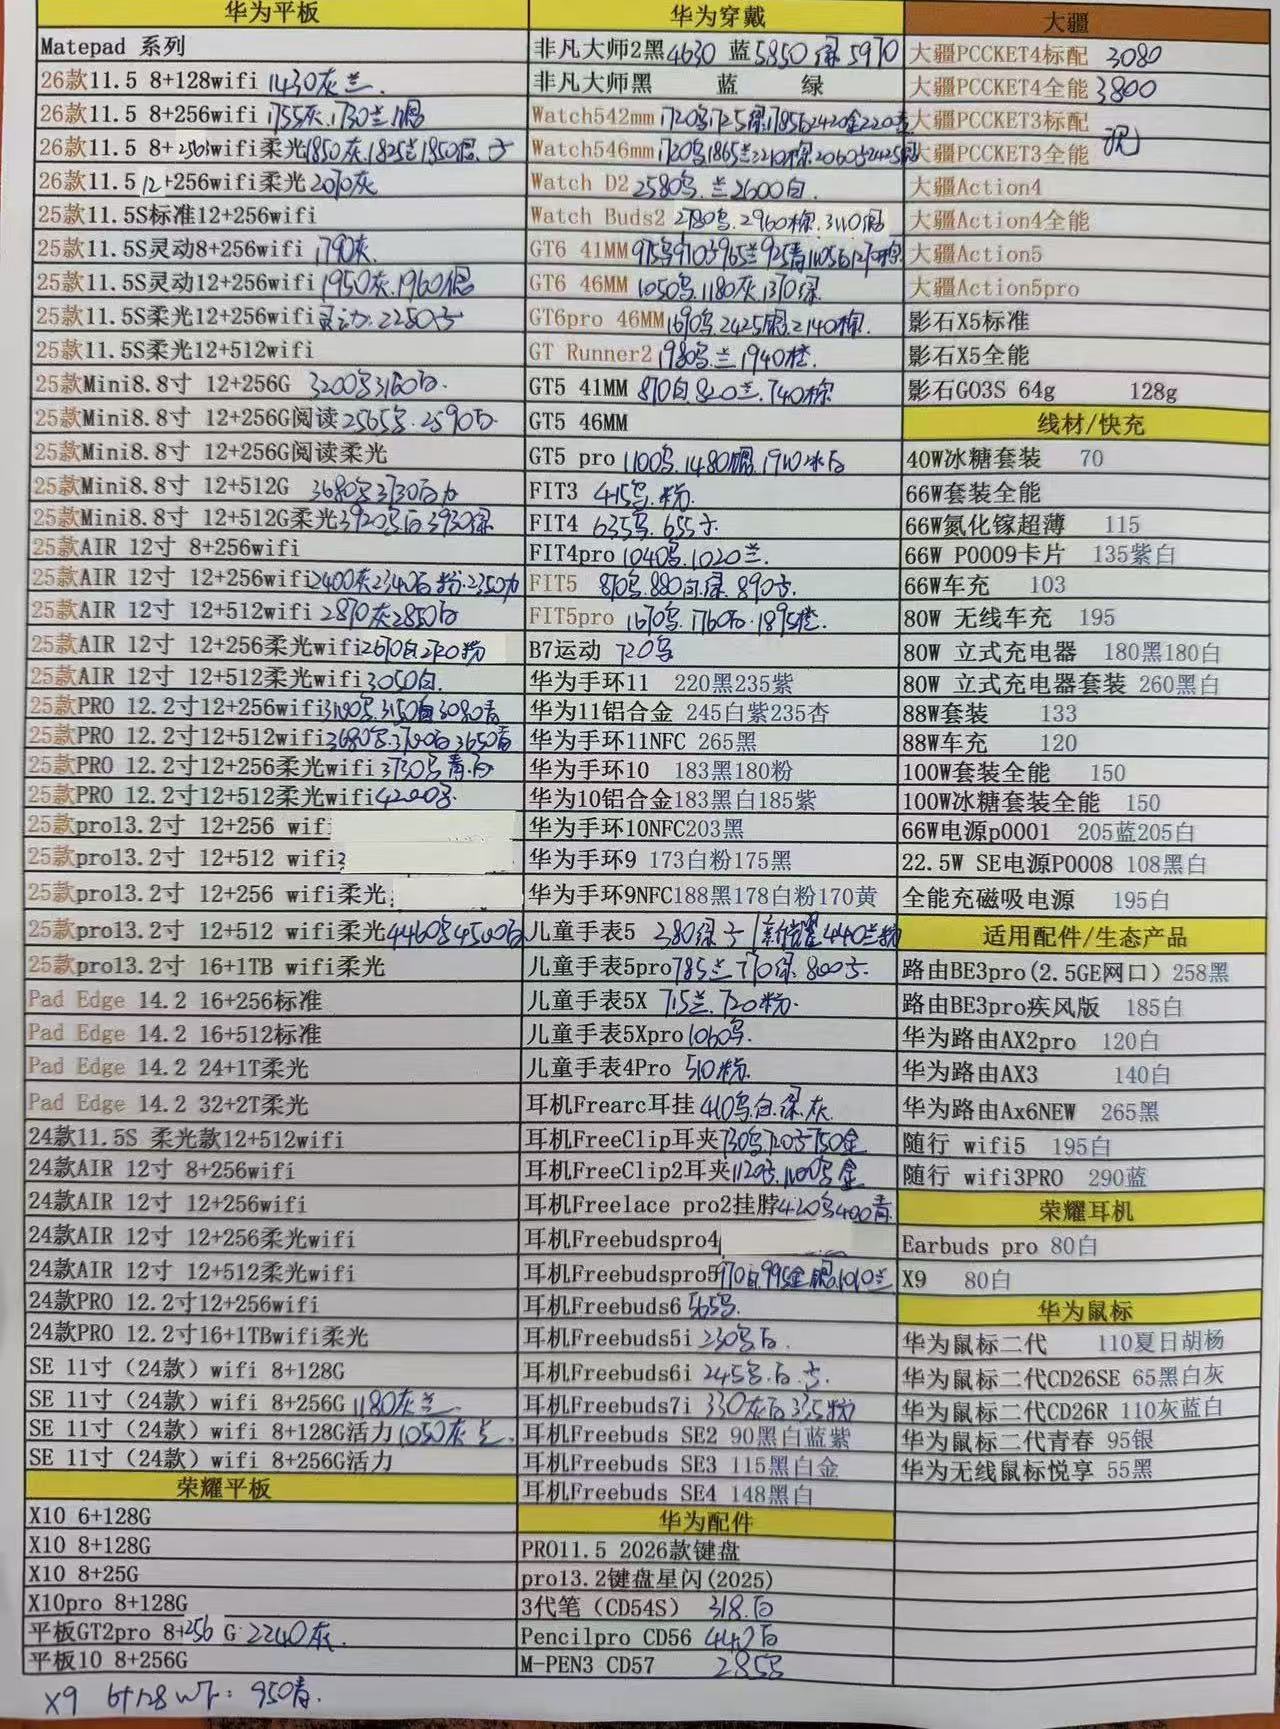 华为平板
Matepad 系列
26款11.5 8+128wifi 1430灰兰.
26款11.5 8+256wifi 1755灰.1730兰
26款11.5 8+256wifi柔光1850灰.1825兰1850
26款11.5 12+256wifi柔光2070灰
25款11.5S标准12+256wifi
25款11.5S灵动8+256wifi 1790灰.
25款11.5S灵动12+256wifi 1950灰.1960银
25款11.5S柔光12+256wifi灵动.2250
25款11.5S柔光12+512wifi
25款Mini8.8寸 12+256G 3200乌3160白.
25款Mini8.8寸 12+256G阅读2565乌.2590白.
25款Mini8.8寸 12+256G阅读柔光
25款Mini8.8寸 12+512G 3680乌3730白
25款Mini8.8寸 12+512G柔光3920乌白3930绿
25款AIR 12寸 8+256wifi
25款AIR 12寸 12+256wifi2400灰2340白粉.2350
25款AIR 12寸 12+512wifi 2870灰2850白
25款AIR 12寸 12+256柔光wifi2670白 粉
25款AIR 12寸 12+512柔光wifi3050白.
25款PRO 12.2寸12+256wifi 3150白3080青
25款PRO 12.2寸12+512wifi3680乌.3700白3650青
25款PRO 12.2寸12+256柔光wifi3730乌青.白
25款PRO 12.2寸12+512柔光wifi4200乌.
25款pro13.2寸 12+256 wifi
25款pro13.2寸 12+512 wifi
25款pro13.2寸 12+256 wifi柔光
25款pro13.2寸 12+512 wifi柔光4460乌4500白
25款pro13.2寸 16+1TB wifi柔光
Pad Edge 14.2 16+256标准
Pad Edge 14.2 16+512标准
Pad Edge 14.2 24+1T柔光
Pad Edge 14.2 32+2T柔光
24款11.5S 柔光款12+512wifi
24款AIR 12寸 8+256wifi
24款AIR 12寸 12+256wifi
24款AIR 12寸 12+256柔光wifi
24款AIR 12寸 12+512柔光wifi
24款PRO 12.2寸12+256wifi
24款PRO 12.2寸16+1TBwifi柔光
SE 11寸（24款）wifi 8+128G
SE 11寸（24款）wifi 8+256G 1180灰兰.
SE 11寸（24款）wifi 8+128G活力1050灰兰.
SE 11寸（24款）wifi 8+256G活力
荣耀平板
X10 6+128G
X10 8+128G
X10 8+25G
X10pro 8+128G
平板GT2pro 8+256 G 2240灰.
平板10 8+256G
X9 6+128 : 950青.
华为穿戴
非凡大师2黑4630 蓝5850 绿5970
非凡大师黑 蓝 绿
Watch542mm1720乌1725绿
Watch546mm1720乌1865兰2210棕
Watch D2 2580乌.兰2600白.
Watch Buds2 2780乌.2960棕.3110银
GT6 41MM975乌
GT6 46MM 1050乌.1180灰.1370绿
GT6pro 46MM1690乌.2425银.2140棕.
GT Runner2 1980乌.兰1940橙.
GT5 41MM 870白.820兰.740棕
GT5 46MM
GT5 pro 1100乌.1480银.1910
FIT3 415乌.粉.
FIT4 635乌.655
FIT4pro 1040乌.1020兰.
FIT5 870乌.880白.绿.890
FIT5pro 1670乌.1760白.1895橙.
B7运动 720乌
华为手环11 220黑235紫
华为11铝合金 245白紫235杏
华为手环11NFC 265黑
华为手环10 183黑180粉
华为10铝合金183黑白185紫
华为手环10NFC203黑
华为手环9 173白粉175黑
华为手环9NFC188黑178白粉170黄
儿童手表5 380绿 440兰粉
儿童手表5pro785兰770绿.800
儿童手表5X 715兰.720粉.
儿童手表5Xpro1060乌.
儿童手表4Pro 510粉.
耳机Frearc耳挂 410乌.白.绿.灰
耳机FreeClip耳夹730乌.720 750金
耳机FreeClip2耳夹1120 1100乌金
耳机Freelace pro2挂脖420乌400青.
耳机Freebudspro4
耳机Freebudspro5970白.995金银.1010兰
耳机Freebuds6 565乌.
耳机Freebuds5i 230乌白.
耳机Freebuds6i 245乌.白.
耳机Freebuds7i 330灰白335粉
耳机Freebuds SE2 90黑白蓝紫
耳机Freebuds SE3 115黑白金
耳机Freebuds SE4 148黑白
华为配件
PRO11.5 2026款键盘
pro13.2键盘星闪(2025)
3代笔（CD54S） 318.白
Pencilpro CD56 440白
M-PEN3 CD57 285
大疆
大疆PCCKET4标配 3080
大疆PCCKET4全能 3800
大疆PCCKET3标配
大疆PCCKET3全能
大疆Action4
大疆Action4全能
大疆Action5
大疆Action5pro
影石X5标准
影石X5全能
影石GO3S 64g 128g
线材/快充
40W冰糖套装 70
66W套装全能
66W氮化镓超薄 115
66W P0009卡片 135紫白
66W车充 103
80W 无线车充 195
80W 立式充电器 180黑180白
80W 立式充电器套装 260黑白
88W套装 133
88W车充 120
100W套装全能 150
100W冰糖套装全能 150
66W电源p0001 205蓝205白
22.5W SE电源P0008 108黑白
全能充磁吸电源 195白
适用配件/生态产品
路由BE3pro(2.5GE网口）258黑
路由BE3pro疾风版 185白
华为路由AX2pro 120白
华为路由AX3 140白
华为路由Ax6NEW 265黑
随行 wifi5 195白
随行 wifi3PRO 290蓝
荣耀耳机
Earbuds pro 80白
X9 80白
华为鼠标
华为鼠标二代 110夏日胡杨
华为鼠标二代CD26SE 65黑白灰
华为鼠标二代CD26R 110灰蓝白
华为鼠标二代青春 95银
华为无线鼠标悦享 55黑